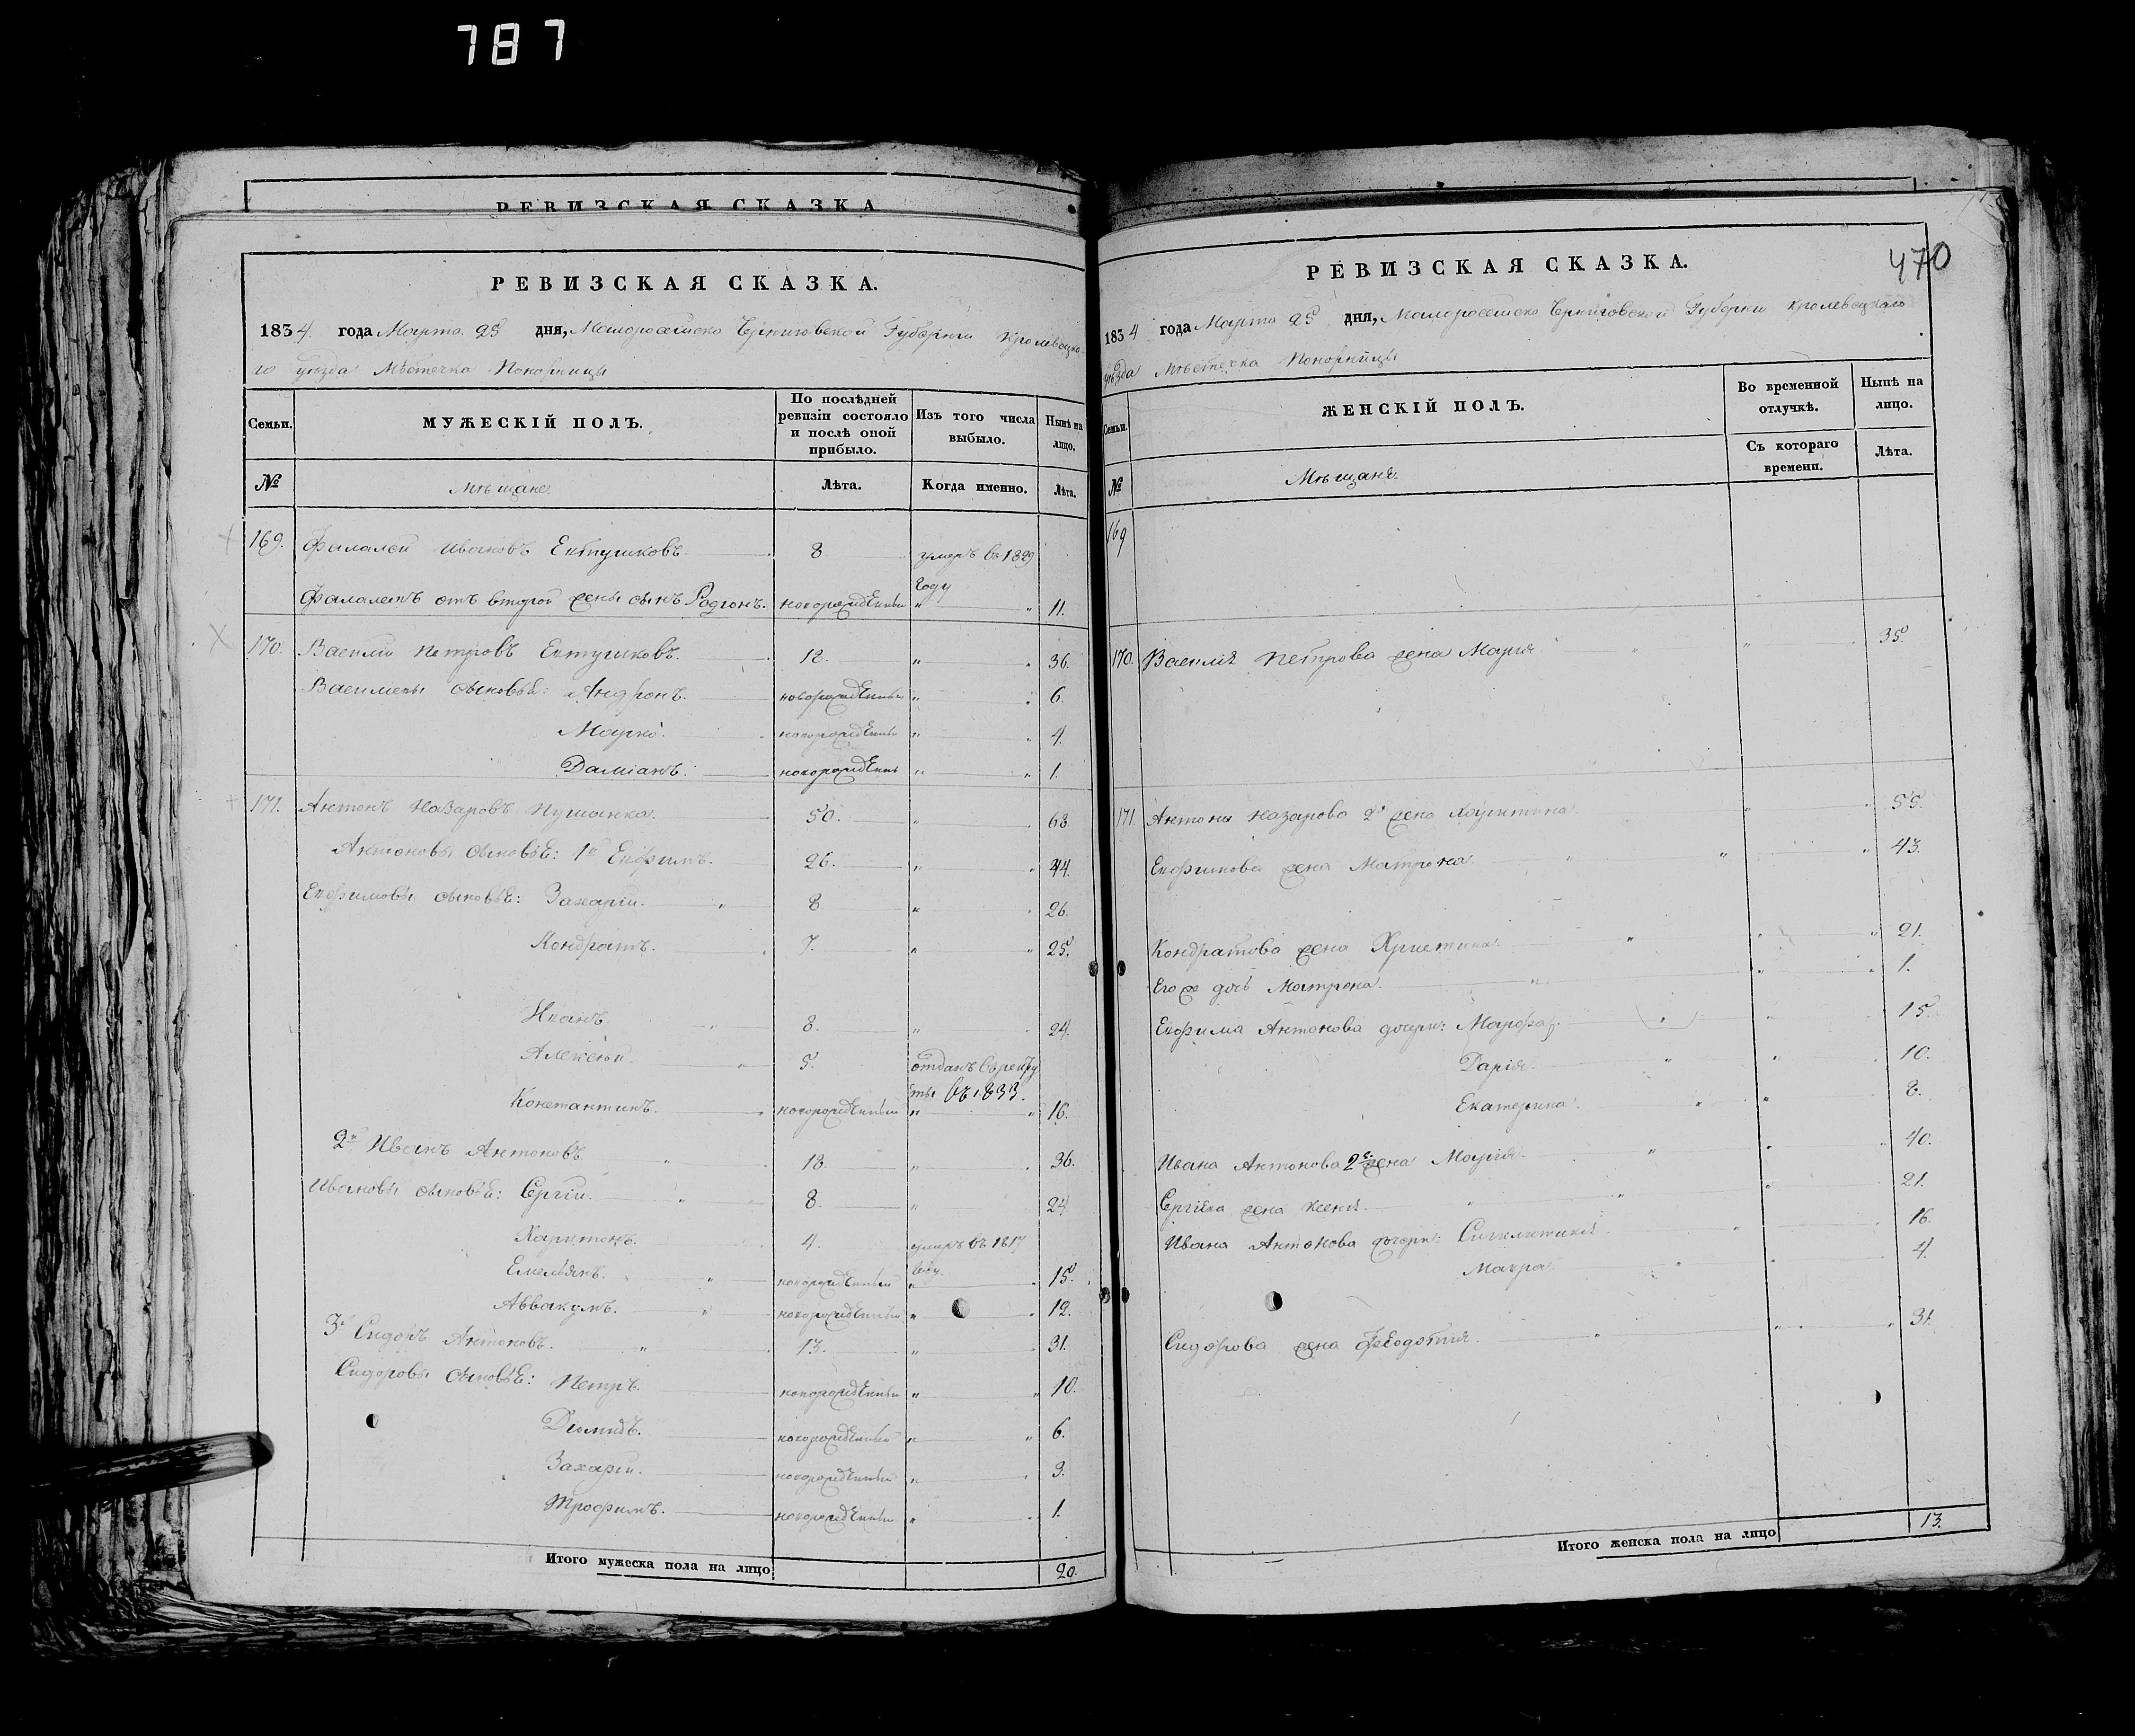 787
РЕВИЗСКАЯ СКАЗКА
РЕВИЗСКАЯ СКАЗКА.
1834. года Марта 25 дня, Малоросійско Черниговской Губерніи Кролевецка-
го уезда Мѣстечка Понорницы
Семьи. МУЖЕСКІЙ ПОЛЪ. По послѣдней ревизіи состояло и послѣ оной прибыло. Изъ того числа выбыло. Нынѣ на лицо.
№ Мѣщане. Лѣта. Когда именно. Лѣта.
169. Фалалей Ивановъ Евтушковъ 8 умеръ въ 1829 году
Фалалеевъ отъ второй жены сынъ Родіонъ. новорожденный " " 11.
170. Василій Петровъ Евтушковъ. 18. " " 36.
Васильевы сыновья: Андронъ. новорожденный " " 6.
Марко. новорожденный " " 4.
Даміанъ. новорожденный " " 1.
171. Антонъ Назаровъ Пушанка. 50. " 68.
Антоновы сыновья: 1й Евфимъ. 26. " " 44.
Евфимовы сыновья: Захарій. " 8 " " 26.
Кондратъ. 7. " " 25.
Иванъ. 8. " 24.
Алексѣй. 5. отданъ въ рекруты въ 1833.
Константинъ. новорожденный " " 16.
2й Иванъ Антоновъ. 18. " 36.
Ивановы сыновья: Сергій. 8. " 24.
Харитонъ. 4. умеръ въ 1817 году.
Емельянъ. новорожденный " 15.
Аввакумъ. новорожденный " 12.
3й Сидоръ Антоновъ. " 13. " 31.
Сидоровы сыновья: Петръ. новорожденный " " 10.
Діомидъ. новорожденный " " 6.
Захарій. новорожденный " 3.
Трофимъ. новорожденный " 1.
Итого мужеска пола на лицо 20.
470
РЕВИЗСКАЯ СКАЗКА.
1834 года Марта 25 дня, Малоросійско Черниговской Губерніи Кролевецкаго
уѣзда Мѣстечка Понорницы
Семьи. ЖЕНСКІЙ ПОЛЪ. Во временной отлучкѣ. Нынѣ на лицо.
№ Мѣщане. Съ котораго времени. Лѣта.
169
170. Василія Петрова жена Марія " " 35
171. Антона Назарова 2я жена " " 55.
Евфимова жена Матрона. " " " " 43.
Кондратова жена Христина. " " " 21.
Его же дочь Матрона. " " " 1.
Евфима Антонова дочери: Марфа. " " 15
Дарія. " " 10.
Екатерина. " " 8.
Ивана Антонова 2я жена Марія. " " " 40.
Сергіева жена Ксенія. " " " 21.
Ивана Антонова дочери: Синклитикія " 16.
Мавра. " " 4.
Сидорова жена Феодотія. " " " 31.
Итого женска пола на лицо 13.